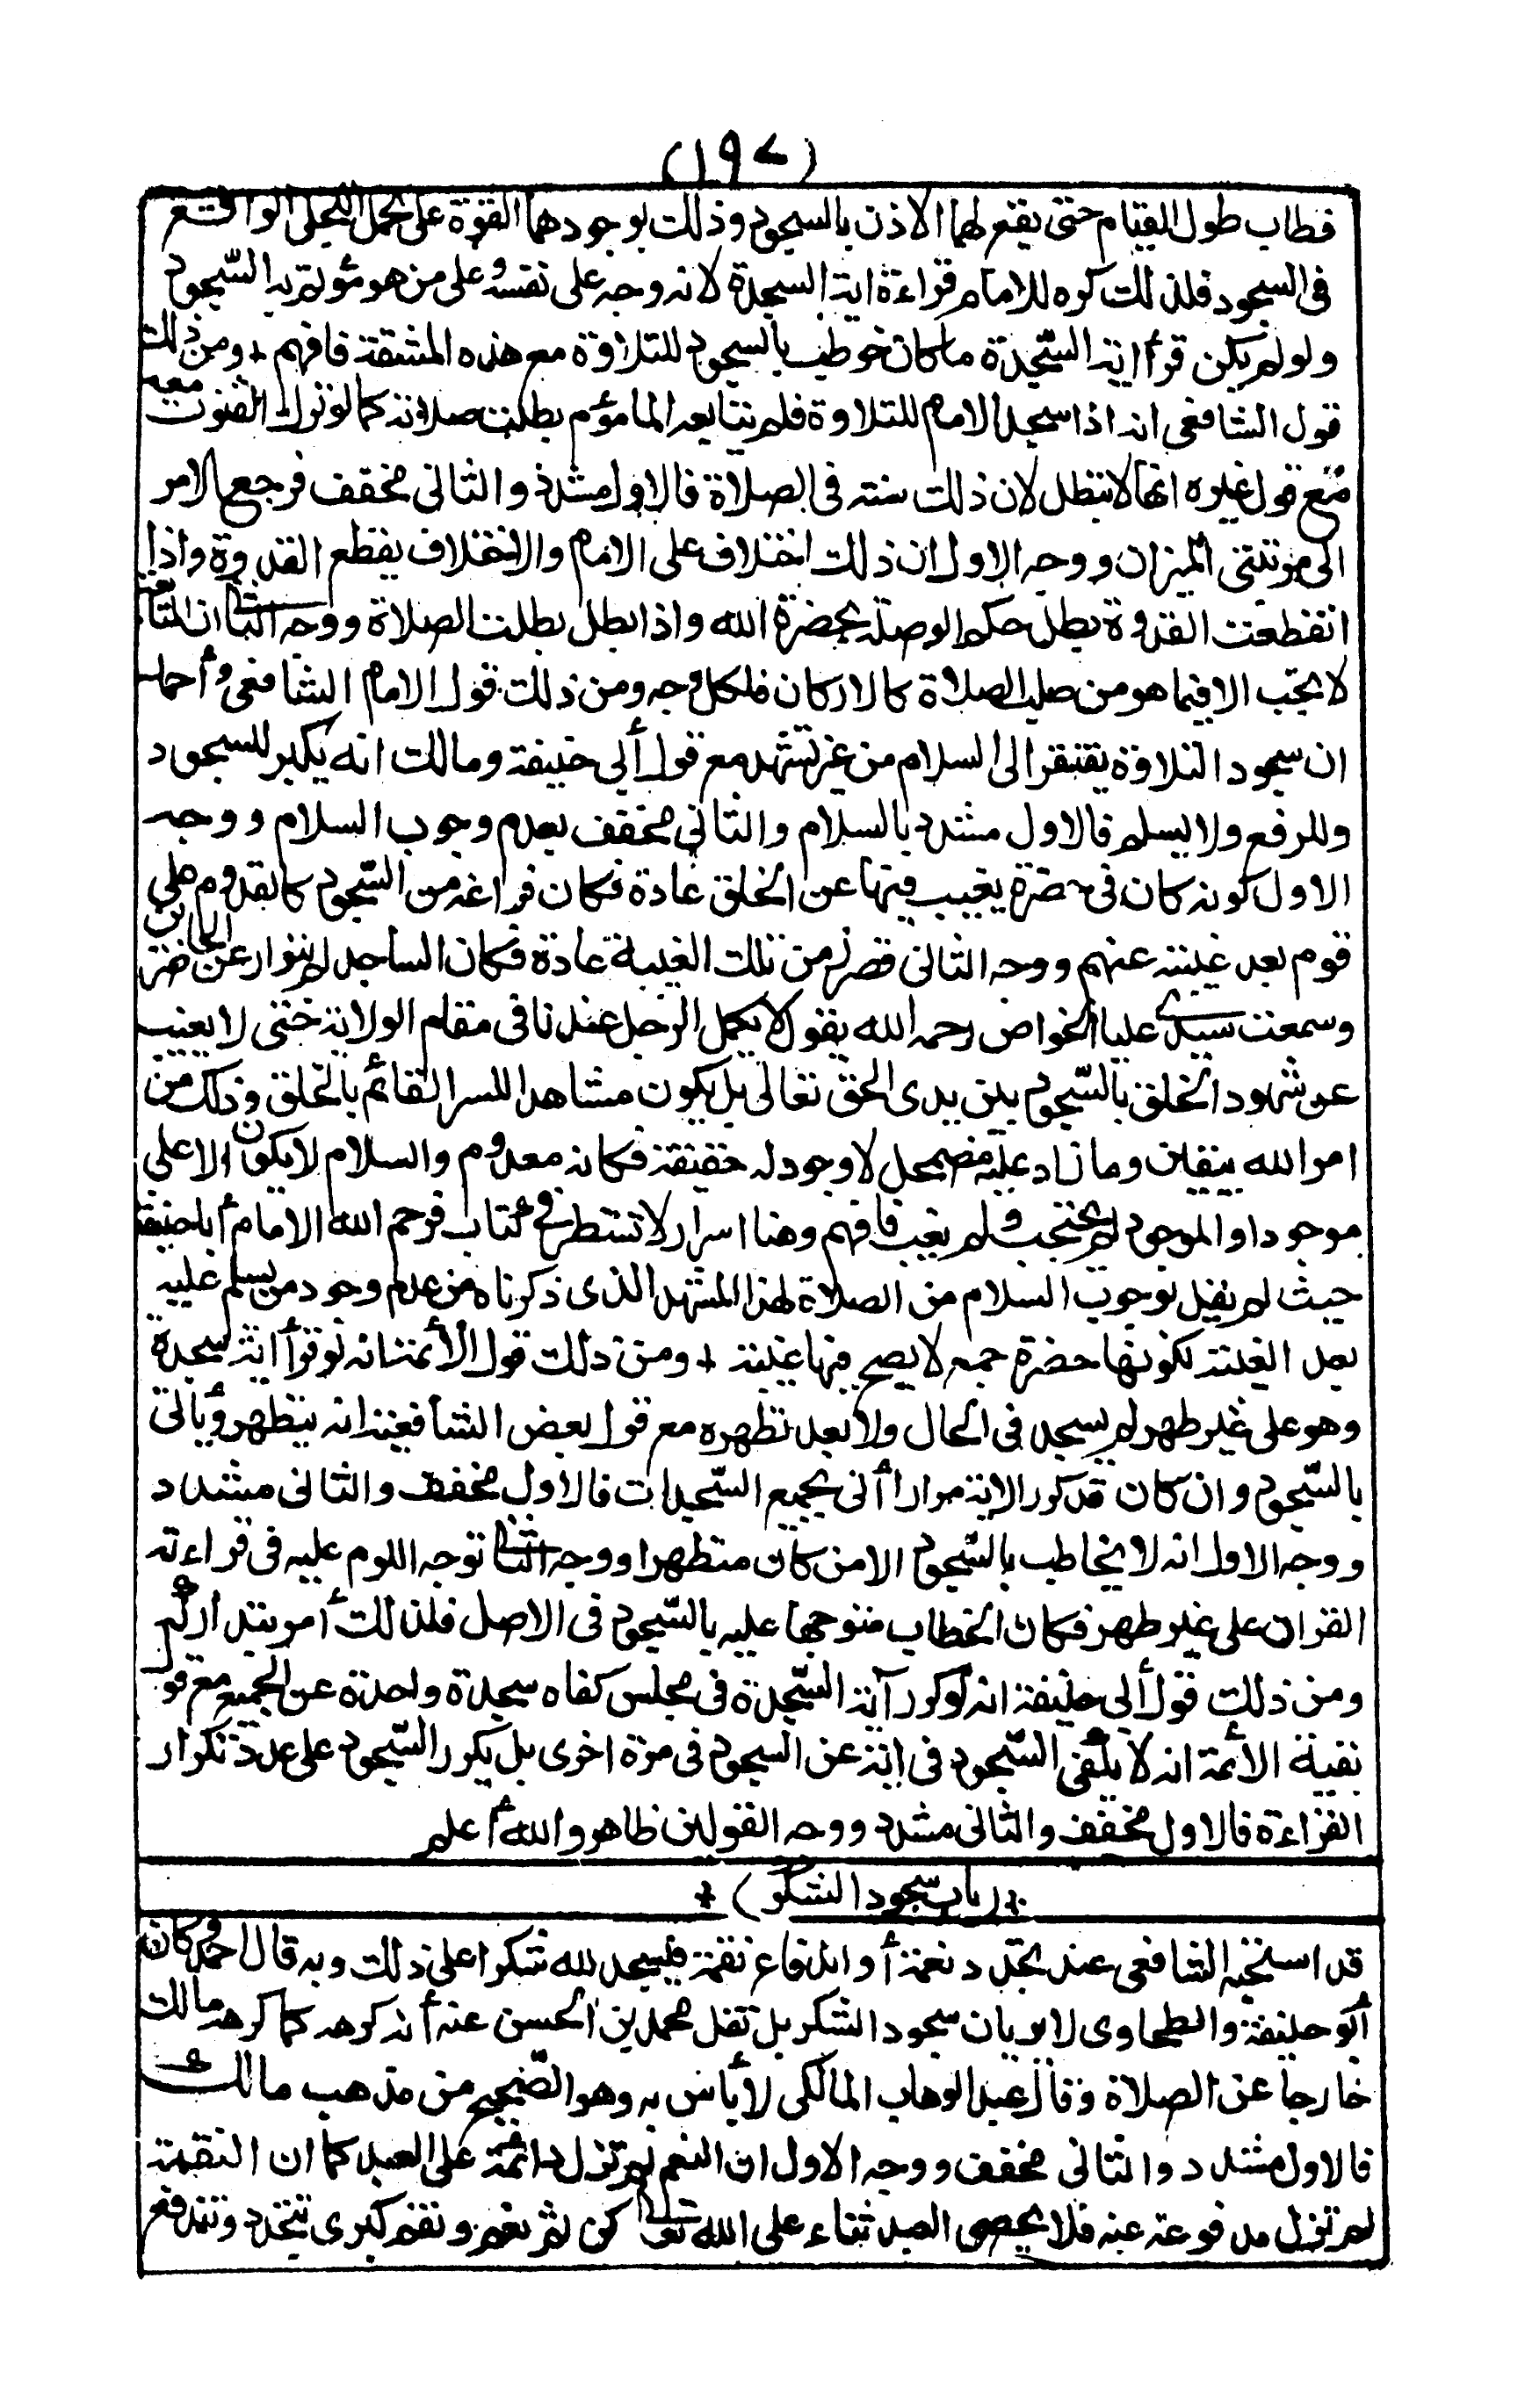 (١٩٧)
فطاب طول القيام حتى يقع لهما الاذن بالسجود وذلك بوجودهما القوة على تحمل التجلى الواقع
فى السجود فلذلك كره للامام قراءة اية السجدة لانه وجه على نفسه وعلى من هو مؤتم به السجود
ولو لم يكن قرأ اية السجدة ما كان خوطب بالسجود للتلاوة مع هذه المشقة فافهم + ومن ذلك
قول الشافعى انه اذا سجد الامام للتلاوة فلم يتابعه المامؤم بطلت صلاته كما لو ترك القنوت معه
مع قول غيره انها لا تبطل لان ذلك سنة فى الصلاة فالاول مشدد والثانى مخفف فرجع الامر
الى مرتبتى الميزان ووجه الاول ان ذلك اختلاف على الامام والاختلاف يقطع القدوة واذا
انقطعت القدوة بطل حكم الوصلة بحضرة الله واذا بطل بطلت الصلاة ووجه الثانى ان المتابعة
لا تجب الا فيما هو من صلب الصلاة كالاركان فلكل وجه ومن ذلك قول الامام الشافعى وأحمد
ان سجود التلاوة يفتقر الى السلام من غير تشهد مع قول أبى حنيفة ومالك انه يكبر للسجود
وللرفع ولا يسلم فالاول مشدد بالسلام والثانى مخفف بعدم وجوب السلام ووجه
الاول كونه كان فى حضرة يغيب فيها عن الخلق عادة فكان فراغه من السجود كالقدوم على
قوم بعد غيبته عنهم ووجه الثانى قصر زمن تلك الغيبة عادة فكان الساجد لم يتوار عن الحاضرين
وسمعت سيدى عليا الخواص رحمه الله يقول لا يكمل الرجل عندنا فى مقام الولاية حتى لا يغيب
عن شهود الخلق بالسجود بين يدى الحق تعالى بل يكون مشاهدا للسر القائم بالخلق وذلك من
امر الله بيقين وما زاد عليه مضمحل لا وجود له حقيقة فكانه معدوم والسلام لا يكون الا على
موجود او الموجود لم يحتجب ولم يغب فافهم وهنا اسرار لا تسطر فى كتاب فرحم الله الامام أبا حنيفة
حيث لم يقل بوجوب السلام من الصلاة لهذا المشهد الذى ذكرناه من عدم وجود من يسلم عليه
بعد الغيبة لكونها حضرة جمع لا يصح فيها غيبة + ومن ذلك قول الأئمة انه لو قرأ اية سجدة
وهو على غير طهر لم يسجد فى الحال ولا بعد تطهره مع قول بعض الشافعية انه يتطهر ويأتى
بالسجود وان كان قد كرر الاية مرارا أتى بجميع السجدات فالاول مخفف والثانى مشدد
ووجه الاول انه لا يخاطب بالسجود الا من كان متطهرا ووجه الثانى توجه اللوم عليه فى قراءته
القران على غير طهر فكان الخطاب متوجها عليه بالسجود فى الاصل فلذلك أمر بتداركه
ومن ذلك قول أبى حنيفة انه لو كرر آية السجدة فى مجلس كفاه سجدة واحدة عن الجميع مع قول
بقية الأئمة انه لا يكفى السجود فى اية عن السجود فى مرة اخرى بل يكرر السجود على عدد تكرار
القراءة فالاول مخفف والثانى مشدد ووجه القولين ظاهر والله أعلم
+ (باب سجود الشكر) +
قد استحبه الشافعى عند تجدد نعمة أو اندفاع نقمة فيسجد لله شكرا على ذلك وبه قال احمد وكان
أبو حنيفة والطحاوى لا يريان سجود الشكر بل نقل محمد بن الحسن عنه أنه كرهه كما كرهه مالك
خارجا عن الصلاة وقال عبد الوهاب المالكى لا بأس به وهو الصحيح من مذهب مالك
فالاول مشدد والثانى مخفف ووجه الاول ان النعم لم تزل دائمة على العبد كما ان النقمة
لم تزل مدفوعة عنه فلا يحصى العبد ثناء على الله تعالى لكن ثم نعم ونقم كبرى تتجدد وتندفع